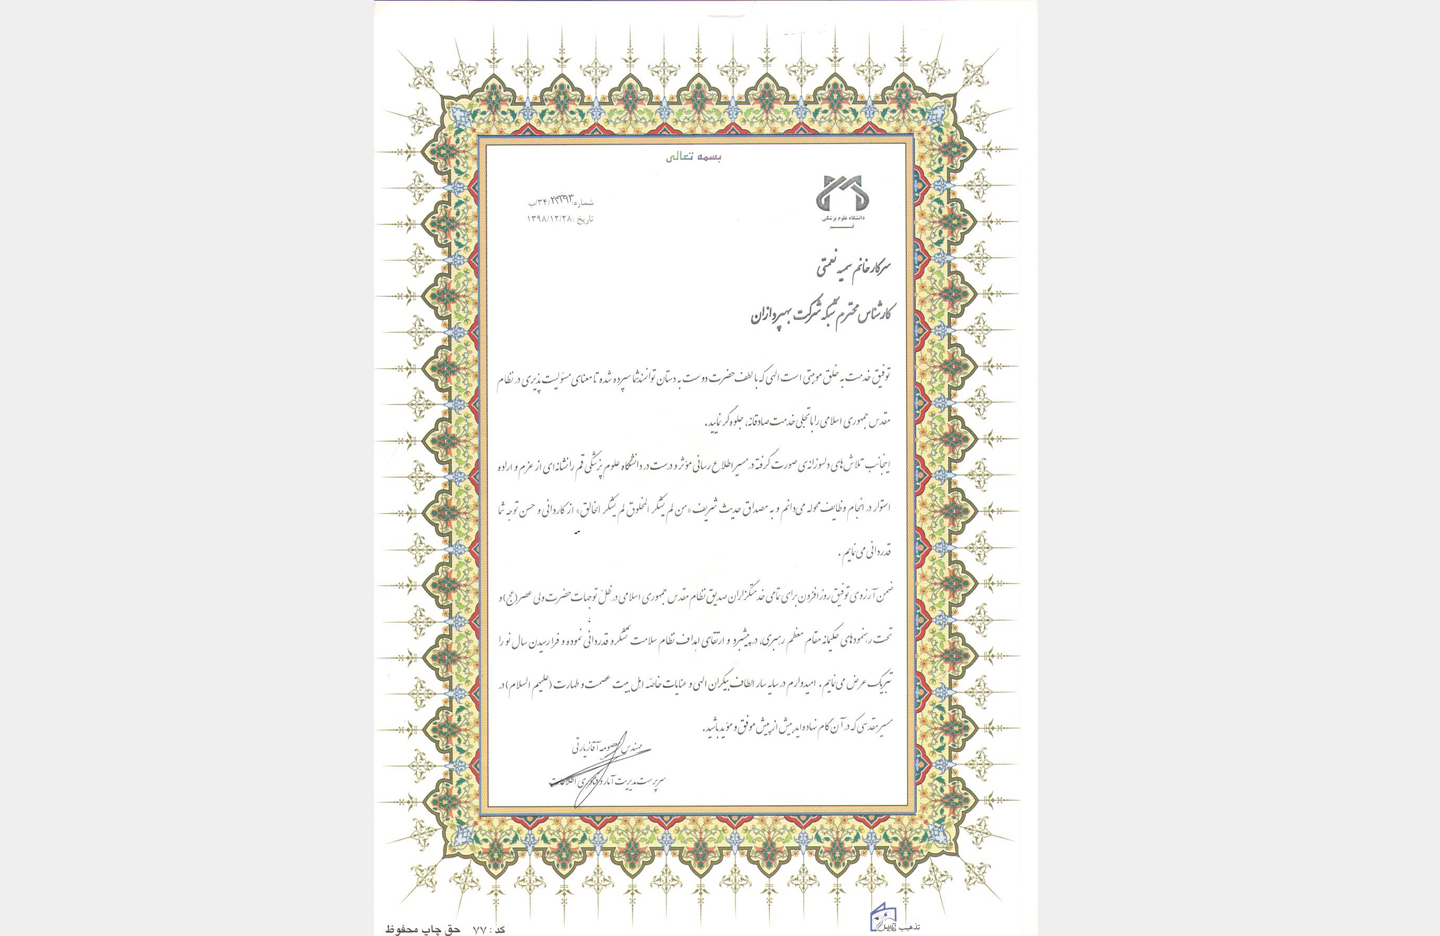 بسمه تعالی
دانشگاه علوم پزشکی
شماره: ۳۴/۲۹۲۹۳/ب
تاریخ: ۱۳۹۸/۱۲/۲۸
سرکار خانم سمیه نعمتی
کارشناس محترم شبکه شرکت بهپردازان
توفیق خدمت به خلق موهبتی است الهی که با لطف حضرت دوست به دستان توانمند شما سپرده شده تا معنای مسئولیت پذیری در نظام
مقدس جمهوری اسلامی را با تجلی خدمت صادقانه، جلوه گر نمایید.
اینجانب تلاش های دلسوزانه ی صورت گرفته در مسیر اطلاع رسانی مؤثر و درست در دانشگاه علوم پزشکی قم را نشانه ای از عزم و اراده
استوار در انجام وظایف محوله می دانم و به مصداق حدیث شریف «من لم یشکر المخلوق لم یشکر الخالق» از کاردانی و حسن توجه شما
قدردانی می نمایم .
ضمن آرزوی توفیق روز افزون برای تمامی خدمتگزاران صدیق نظام مقدس جمهوری اسلامی در ظل توجهات حضرت ولی عصر(عج) و
تحت رهنمودهای حکیمانه مقام معظم رهبری، در پیشبرد و ارتقای اهداف نظام سلامت تشکر و قدردانی نموده و فرا رسیدن سال نو را
تبریک عرض می نمایم. امیدوارم در سایه سار الطاف بیکران الهی و عنایات خاصّه اهل بیت عصمت و طهارت (علیهم السلام) در
مسیر مقدسی که در آن گام نهاده اید بیش از پیش موفق و مؤید باشید.
مهندس معصومه آقازیارتی
سرپرست مدیریت آمار و فناوری اطلاعات
تذهیب
کد : ۷۷ حق چاپ محفوظ